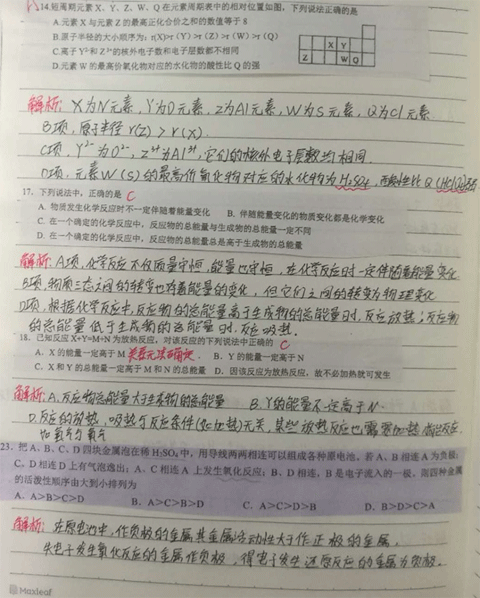 14.短周期元素 X、Y、Z、W、Q 在元素周期表中的相对位置如图，下列说法正确的是
A.元素 X 与元素 Z 的最高正化合价之和的数值等于 8
B.原子半径的大小顺序为：r(X)>r(Y)>r(Z)>r(W)>r(Q)
C.离子 Y²⁻和 Z³⁺的核外电子数和电子层数都不相同
D.元素 W 的最高价氧化物对应的水化物的酸性比 Q 的强
X Y
Z W Q
解析: X为N元素, Y为O元素, Z为Al元素, W为S元素, Q为Cl元素
B项, 原子半径 r(Z) > r(X).
C项, Y²⁻为O²⁻, Z³⁺为Al³⁺, 它们的核外电子层数均相同.
D项, 元素W(S)的最高价氧化物对应的水化物为H₂SO₄, 酸性比Q(HClO₄)弱
17. 下列说法中，正确的是 C
A. 物质发生化学反应时不一定伴随着能量变化 B. 伴随能量变化的物质变化都是化学变化
C. 在一个确定的化学反应中，反应物的总能量与生成物的总能量一定不同
D. 在一个确定的化学反应中，反应物的总能量总是高于生成物的总能量
解析: A项, 化学反应不仅质量守恒, 能量也守恒, 在化学反应时一定伴随着能量变化
B项, 物质三态之间的转变也有着能量的变化, 但它们之间的转变为物理变化
D项, 根据化学反应中, 反应物的总能量高于生成物的总能量时, 反应放热; 反应物
的总能量低于生成物的总能量时, 反应吸热.
18. 已知反应 X+Y=M+N 为放热反应，对该反应的下列说法中正确的 C
A. X 的能量一定高于 M 关系无法确定. B. Y 的能量一定高于 N
C. X 和 Y 的总能量一定高于 M 和 N 的总能量 D. 因该反应为放热反应，故不必加热就可发生
解析: A. 反应物总能量大于生成物的总能量 B. Y的能量不一定高于N.
D. 反应的放热, 吸热与反应条件(如加热)无关, 某些放热反应也需要加热
如氢气与氧气
23. 把 A、B、C、D 四块金属泡在稀 H₂SO₄ 中，用导线两两相连可以组成各种原电池。若 A、B 相连 A 为负极；
C、D 相连 D 上有气泡逸出；A、C 相连 A 上发生氧化反应；B、D 相连，B 是电子流入的一极，则四种金属
的活泼性顺序由大到小排列为
A. A>B>C>D B. A>C>B>D C. A>C>D>B D. B>D>C>A
解析: 在原电池中, 作负极的金属其金属活动性大于作正极的金属.
失电子发生氧化反应的金属作负极, 得电子发生还原反应的金属为负极.
Maxleaf